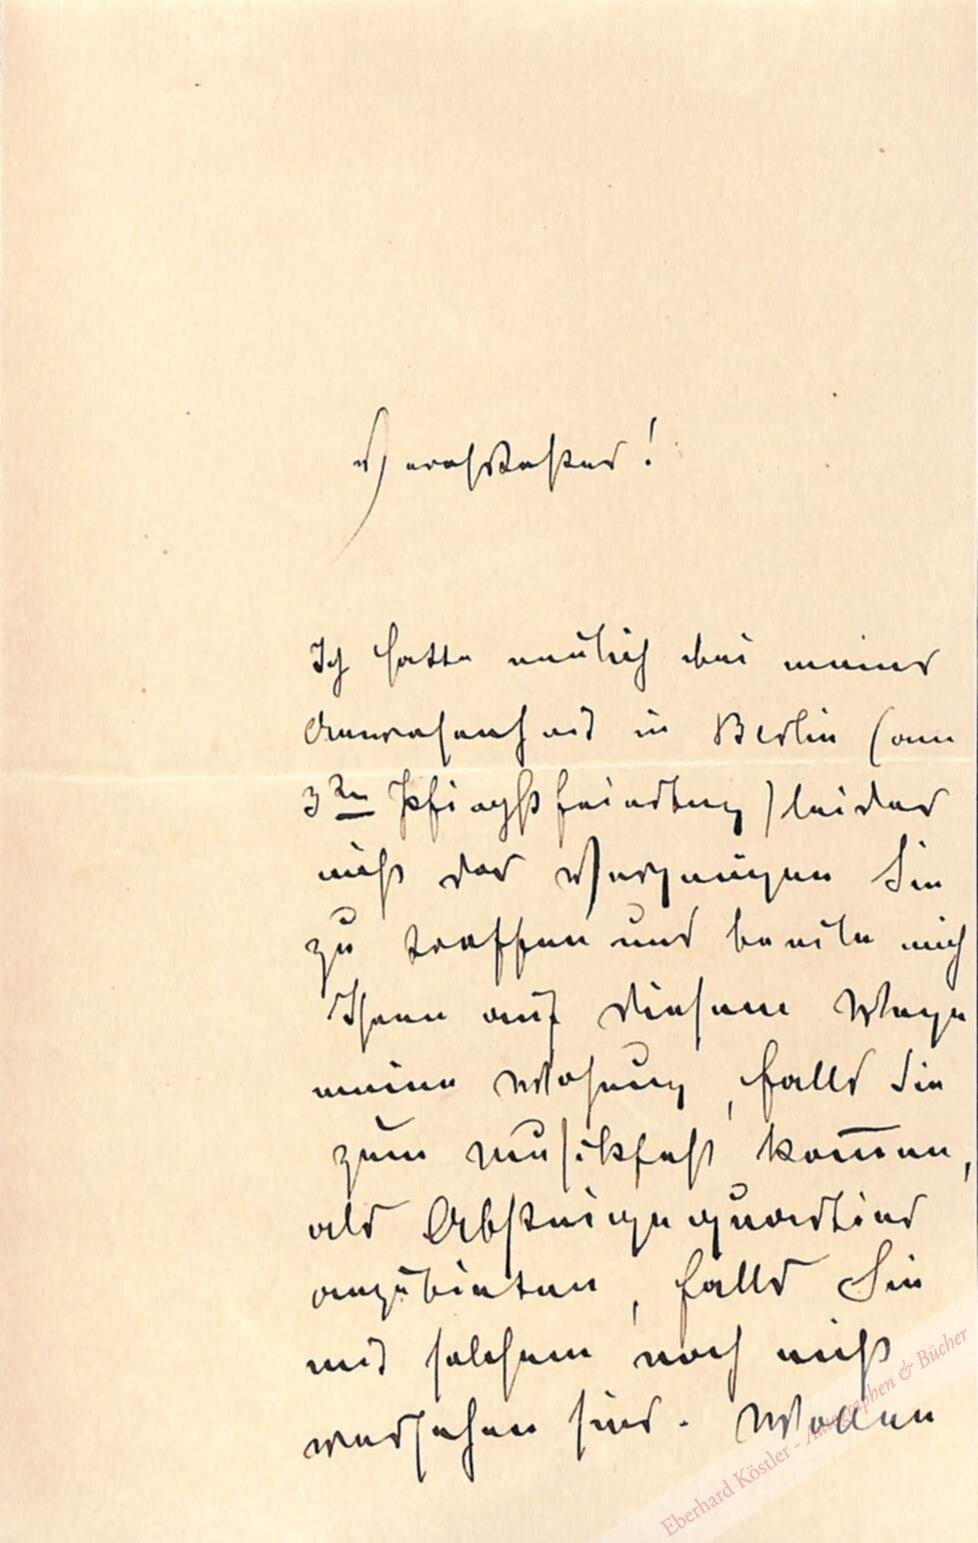 Verehrtester!
Ich hatte neulich bei meiner
Anwesenheit in Berlin (am
3ten Pfingstfeiertag) leider
nicht das Vergnügen Sie
zu treffen und beeile mich
Ihnen auf diesem Wege
meine Wohnung, falls Sie
zum Musikfest kom̅en,
als Absteigequartier
anzubieten, falls Sie
mit solchem noch nicht
versehen sind. Wollen
Eberhard Köstler - Autographen & Bücher